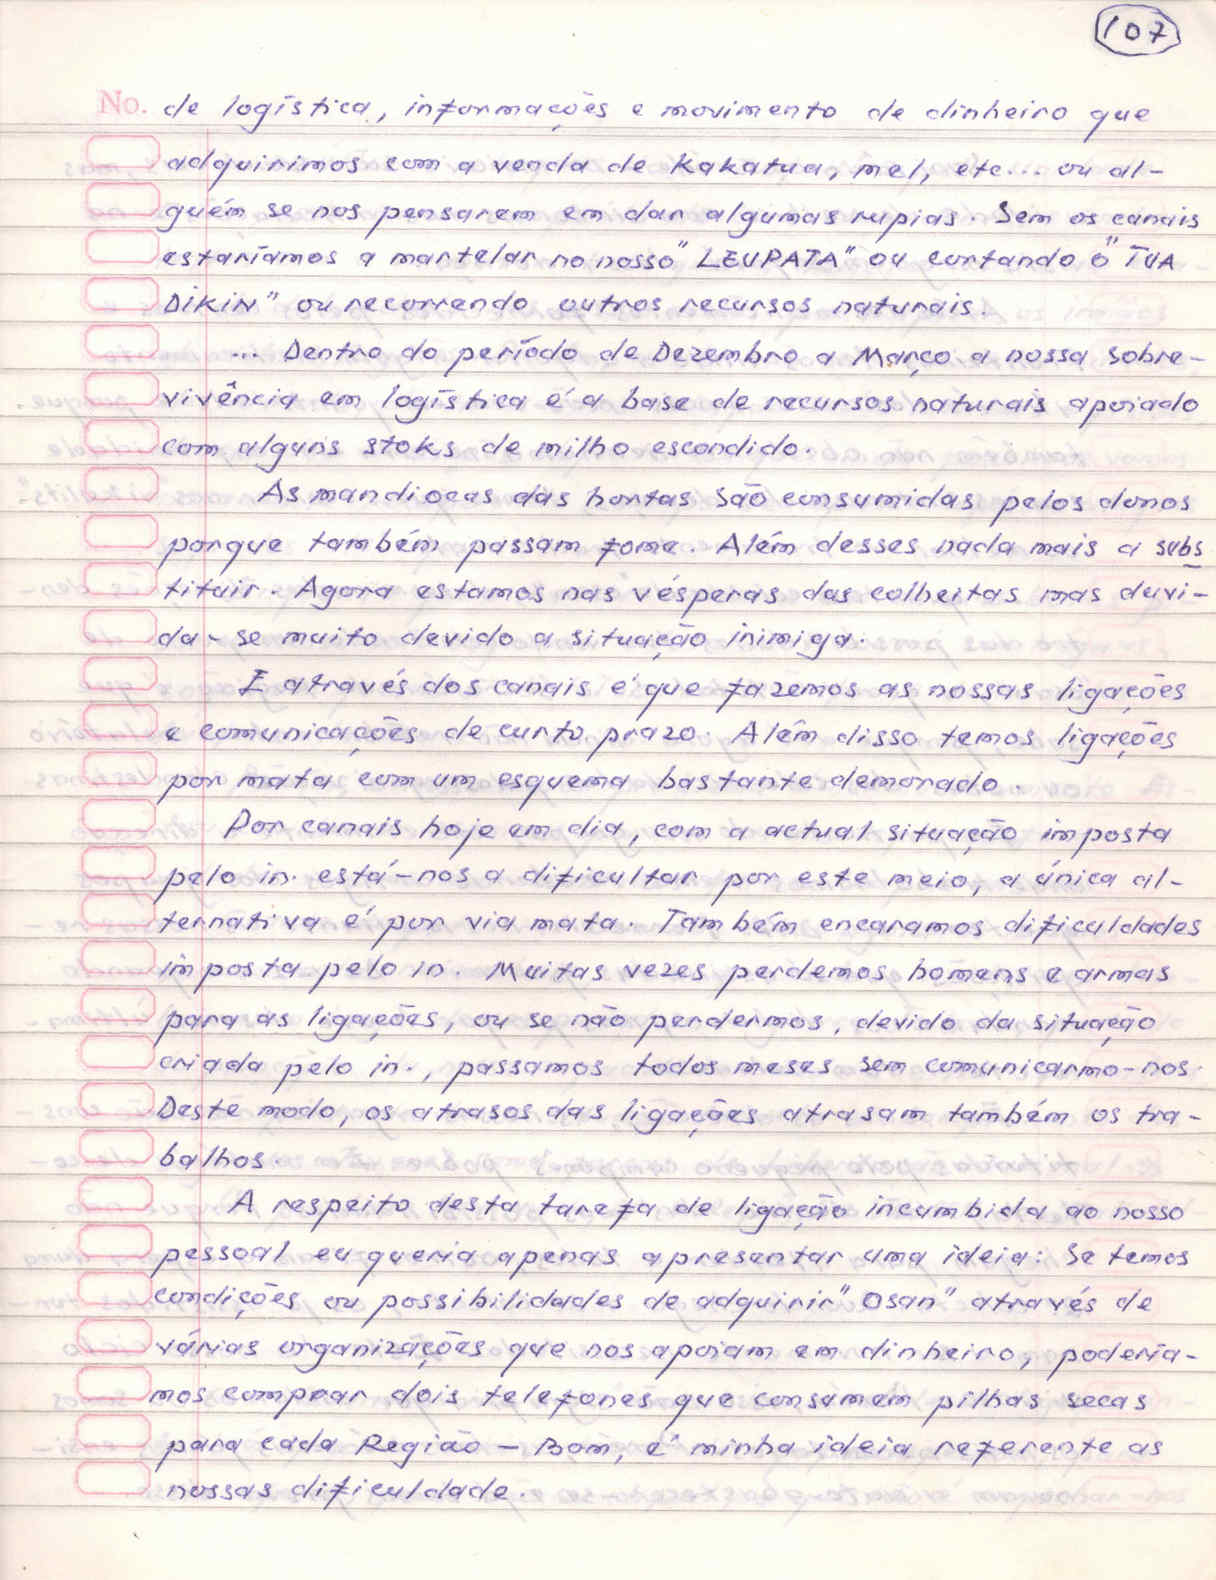 107
No. de logística, informações e movimento de dinheiro que
adquirimos com a venda de Kakatua, mel, etc... ou al-
guém se nos pensarem em dar algumas rupias. Sem os canais
estaríamos a martelar no nosso "LEUPATA" ou cortando o "TUA
DIKIN" ou recorrendo outros recursos naturais.
... Dentro do período de Dezembro a Março a nossa sobre-
vivência em logística é a base de recursos naturais apoiado
com alguns stoks de milho escondido.
As mandiocas das hortas são consumidas pelos donos
porque também passam fome. Além desses nada mais a subs
tituir. Agora estamos nas vésperas das colheitas mas duvi-
da-se muito devido a situação inimiga.
E através dos canais é que fazemos as nossas ligações
e comunicações de curto prazo. Além disso temos ligações
por mata com um esquema bastante demorado.
Por canais hoje em dia, com a actual situação imposta
pelo in. está-nos a dificultar por este meio, a única al-
ternativa é por via mata. Também encaramos dificuldades
imposta pelo in. Muitas vezes perdemos homens e armas
para as ligações, ou se não perdermos, devido da situação
criada pelo in., passamos todos meses sem comunicarmo-nos.
Deste modo, os atrasos das ligações atrasam também os tra-
balhos.
A respeito desta tarefa de ligação incumbida ao nosso
pessoal eu queria apenas apresentar uma ideia: Se temos
condições ou possibilidades de adquirir "Osan" através de
várias organizações que nos apoiam em dinheiro, podería-
mos comprar dois telefones que consamem pilhas secas
para cada Região - Bom, é minha ideia referente as
nossas dificuldade.